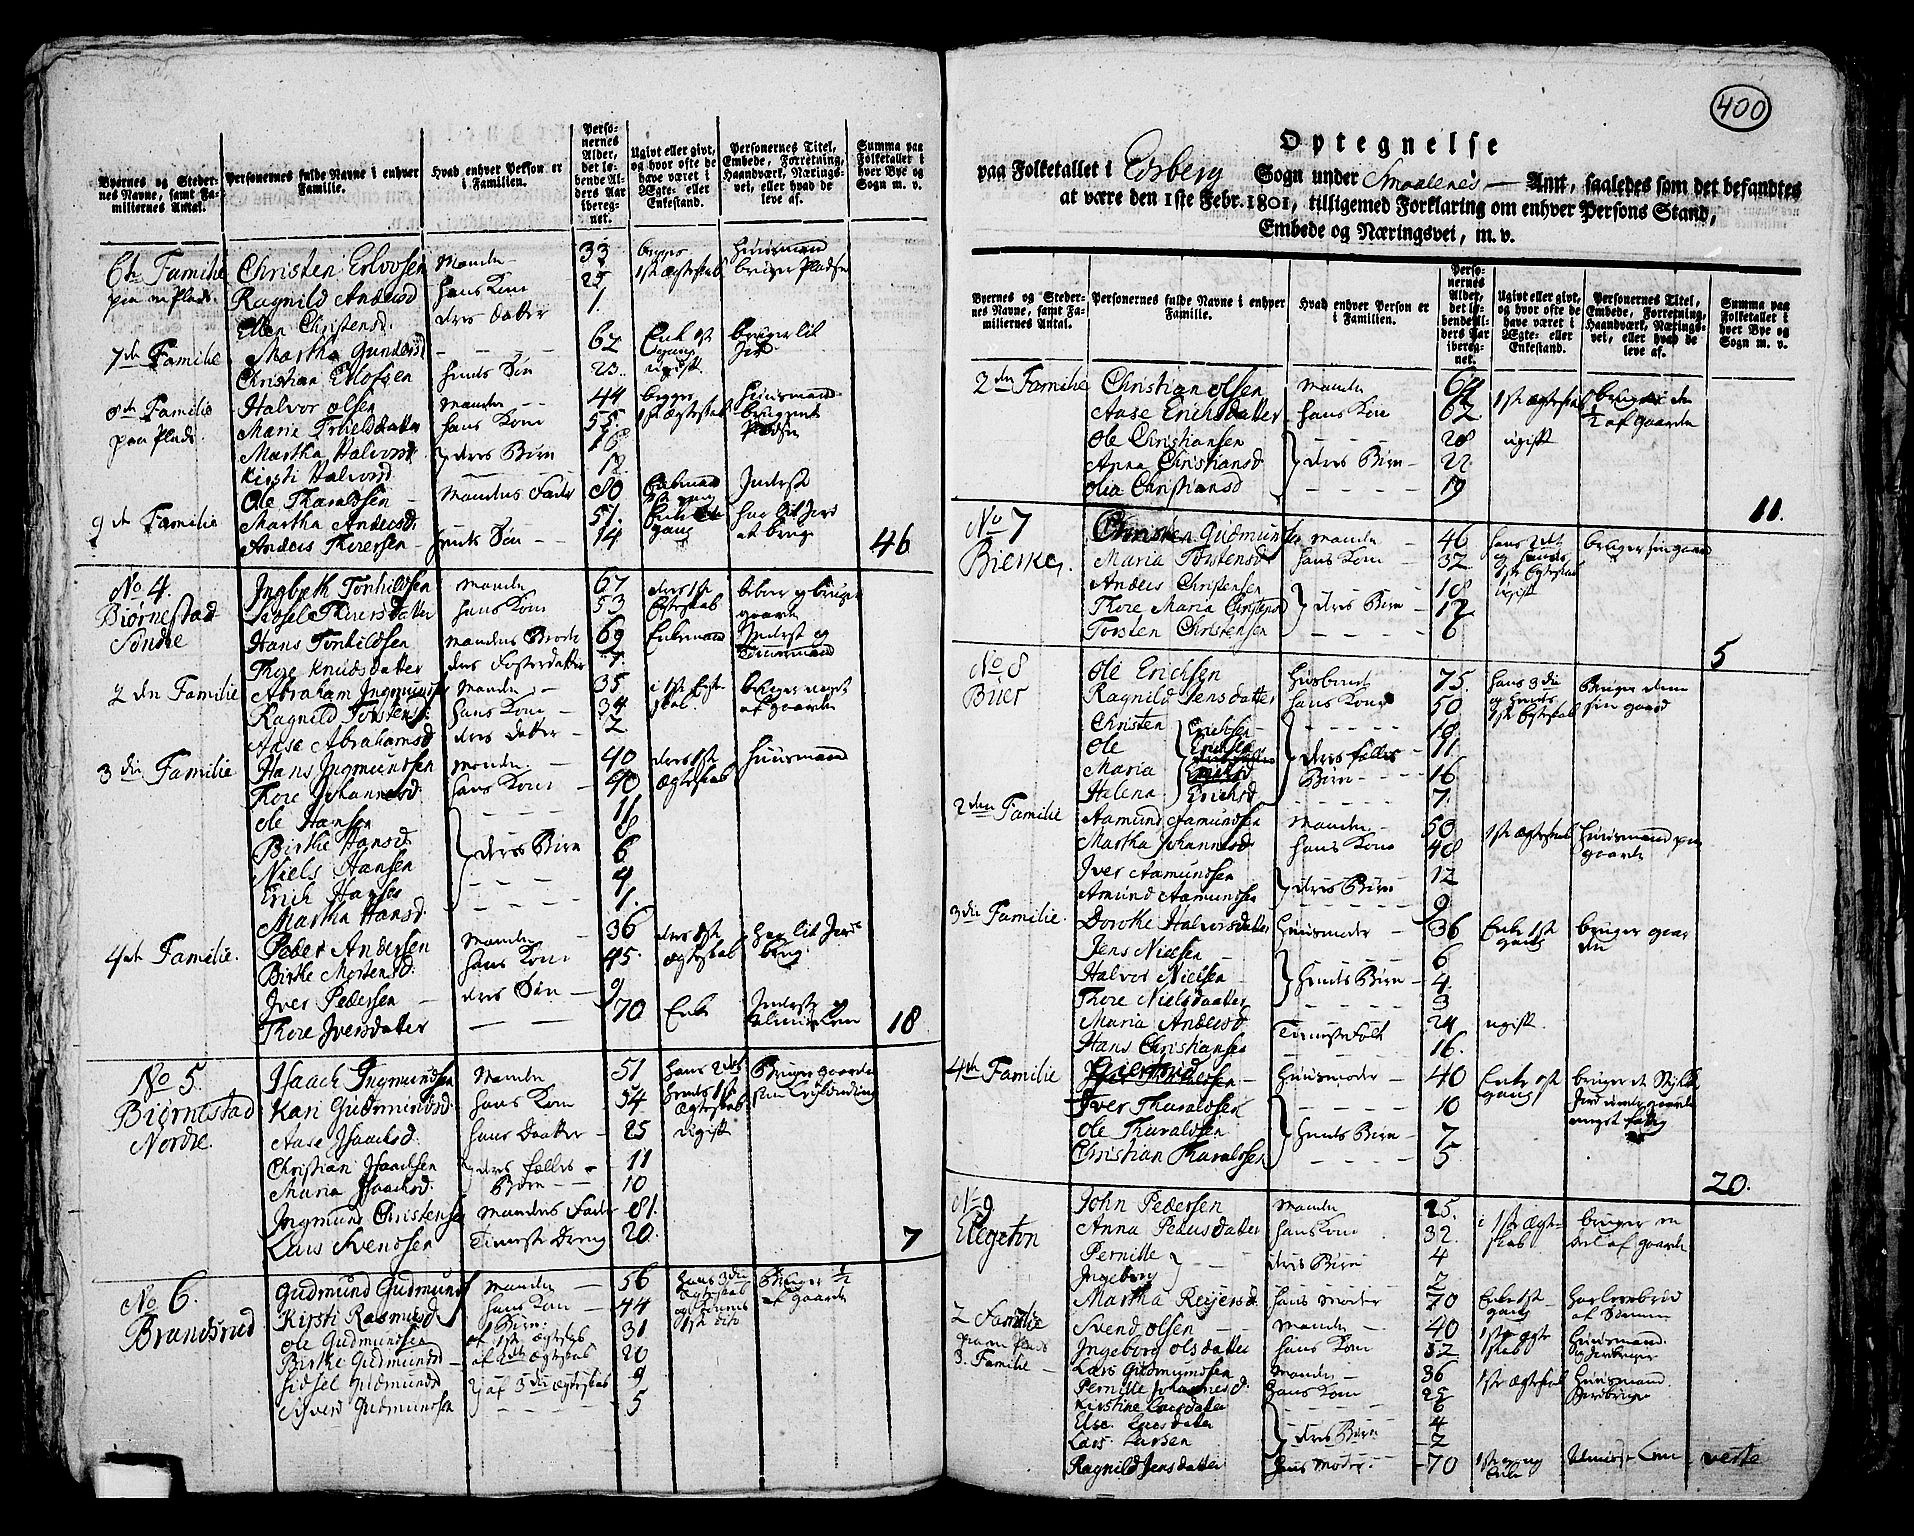 Byernes og Stedernes Navne, samt Familiernes Antal. | Personernes fulde Navne i enhver Familie. | Hvad enhver Person er i Familien. | Personernes Alder, det løbende Alders Aar iberegnet. | Ugivt eller givt, og hvor ofte de have været i Ægte- eller Enkestand. | Personernes Titel, Embede, Forretning, Haandværk, Næringsvei, eller hvad de leve af. | Summa paa Folketallet i hver Bye og Sogn m. v.
6te Familie Christen Erlovsen Mande 33 begges Huusmand
paa en Plads. Ragnild Andersd hans Kone 25 1ste Ægteskab bruger Pladse
Ellen Christensd. deres datter 1.
7de Familie Martha Gundersd 62 Enke 1st gang bruger lit Jord
Christian Erlofsen hendes Søn 23. ugift
8de Familie Halvor Olsen Mande 44 begge Huusmand
paa Plads. Marie datter hans Kone 55 1ste Ægteskab
Martha Halvorsd 16
Kirsti Halvorsd deres Børn 12
Ole Tharaldsen Mandens Fader 80 Enkemand Inderst
9de Familie Martha Andersd. 51. har lit Jord
Anders Thoresen Søn 14 gang at bruge 46
No 4. Ingbreth Tonhildsen Mande 67 deres 1ste beboer og bruger
Biørnestad Sidsel Thorersdatter hans Kone 53 Egteskab gaarde
Søndre Hans Tonhildsen Mandens Brode 69 Enkemand Inderst og
Thore Knudsdatter deres Fosterdatter 7.
2den Familie Abraham Ingmunds Mande 35 i 1ste Egteskab. bruger noget af gaarde
Ragnild Torstens. hans Kone 34
Aase Abrahamsd deres datter 2
3die Familie Hans Ingmundsen Mande 40 deres 1ste Huusmand
Thore Johannesd. hans Kone 40 Ægteskab
Ole Hansen 11
Birthe Hansd 8
Niels Hansen deres Børn 6
Erich Hanse 4
Martha Hansd. 1.
4de Familie. Peder Andersen Mande 36 deres 1ste har lit Jord
Birthe Mortensd. hans Kone 45. Ægteskab brug
Iver Pedersen deres Søn 9
Thore Iversdatter 70 Enke Inderste 18
No 5. Isaach Ingmundsen Mande 51 hans 2det Bruger gaarde
Biørnestad Kari Gudmundsd. hans Kone 54 hendes 1ste
Nordre. Aase Isaachsd. hans Daatter 25 Ægteskab ugift
Christian Isachsen deres fælles 11
Maria Isaachsd. Børn 10
Ingmund Christense Mandens Fader 81.
Lars Svendsen Tieneste Dreng 20. 7
No 6. Gudmund Gudmunds Mande 56 hans 3die Ægteskab Bruger 1/2
Brandsrud Kirsti Rasmusd. hans Kone 44 og Kones 1ste dito af gaarde
Ole Gudmundsen Børn: af 1ste Ægteskab 31
Birthe Gudmundsd af 2det Ægteskab 20
Sidsel Gudmundsd 9
Siverd Gudmundsen af 3die Ægteskab 5
400
Optegnelse
paa Folketallet i Edsberg Sogn under Smaalenes Amt, saaledes som det befandtes
at være den 1ste Febr. 1801, tilligemed Forklaring om enhver Persons Stand,
Embede og Næringsvei, m. v.
Byernes og Stedernes Navne, samt Familiernes Antal. | Personernes fulde Navne i enhver Familie. | Hvad enhver Person er i Familien. | Personernes Alder, det løbende Alders Aar iberegnet. | Ugivt eller givt, og hvor ofte de have været i Ægte- eller Enkestand. | Personernes Titel, Embede, Forretning, Haandværk, Næringsvei, eller hvad de leve af. | Summa paa Folketallet i hver Bye og Sogn m. v.
2den Familie Christian Olsen Mande 64 1ste Ægteskab bruger den
Aase Erichsdatter hans Kone 62 1/2 af gaarde
Ole Christiansen 28 ugift
Anna Christiansd deres Børn 22
Olia Christiansd 19 11.
No 7 Christen Gudmunds Mande 46 hans 2det bruger sin gaard
Bierke. Maria Torstensd. hans Kone 32 og hendes 1ste Egteskab
Anders Christensen 18 ugift
Thore Maria Christensd deres Børn 12
Torsten Christensen 6 5
No 8 Ole Erichsen Husbond 75. hans 3die Bruger denne
Buer Ragnild Jensdatter hans Kone 50 og hendes 1ste Egteskab sin gaard
Christen Erichsen 18
Ole Erichsen deres fælles 11.
Maria Børn 16
Halena Erichsd. 7.
2den Familie Aamund Aamundsen Mande 50 1ste Ægteskab Huusmand paa
Martha Johannesd. hans Kone 48 gaarde
Iver Aamundsen 12
Amund Aamundsen deres Børn 9
3die Familie. Dorothe Halvorsdatter Huusmoder 36 Enke 1ste gang bruger gaarden
Jens Nielsen 6
Halvor Nielsen hendes Børn 4.
Thore Nielsdaatter 3
Maria Andersd 24 ugift.
Hans Christiansen Tieneste Folk 16.
4de Familie Giertrud Huusmoder 40 Enke 1ste gang bruger et Stykke
Iver Tharaldsen 10
Ole Tharaldsen hendes Børn 7
Christian Tharaldsen 5 20.
No 9 John Pedersen Mande 25. i 1ste Ægteskab bruger en
Elegeton Anna Pedersdatter hans Kone 32. deel af gaarde
Pernille deres Børn 4
Ingeborg 2
Martha Reyersd. hans Moder 70 Enke 1ste gang har levebrød af Sønnen
2 Familie Svend Olsen Mande 40 1ste Ægteskab Huusmand
paa en Plads Ingeborg Olsdatter hans Kone 32 og Jordbruger
3. Familie Lars Gudmundsen Mande 36 1ste Ægteskab Huusmand
Pernille Johannesd. hans Kone 25 Jordbruger
Kirstine Larsdatter 6
Else Larsdatter deres Børn 4
Lars Larsen 2
Ragnild Jensdatter hans Moder 70 1ste gang Enke verte